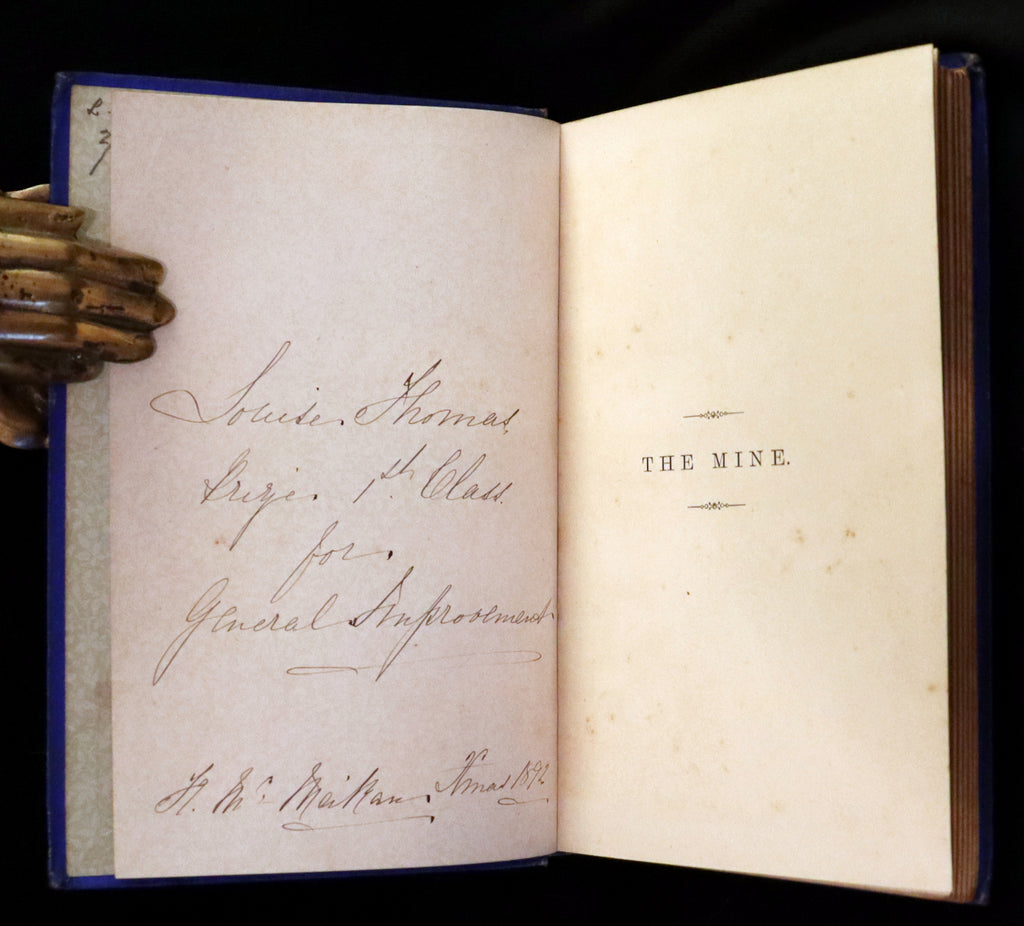 Louise Thomas,
Prize. 1st. Class.
for.
General Improvement
Xmas 1892
THE MINE.